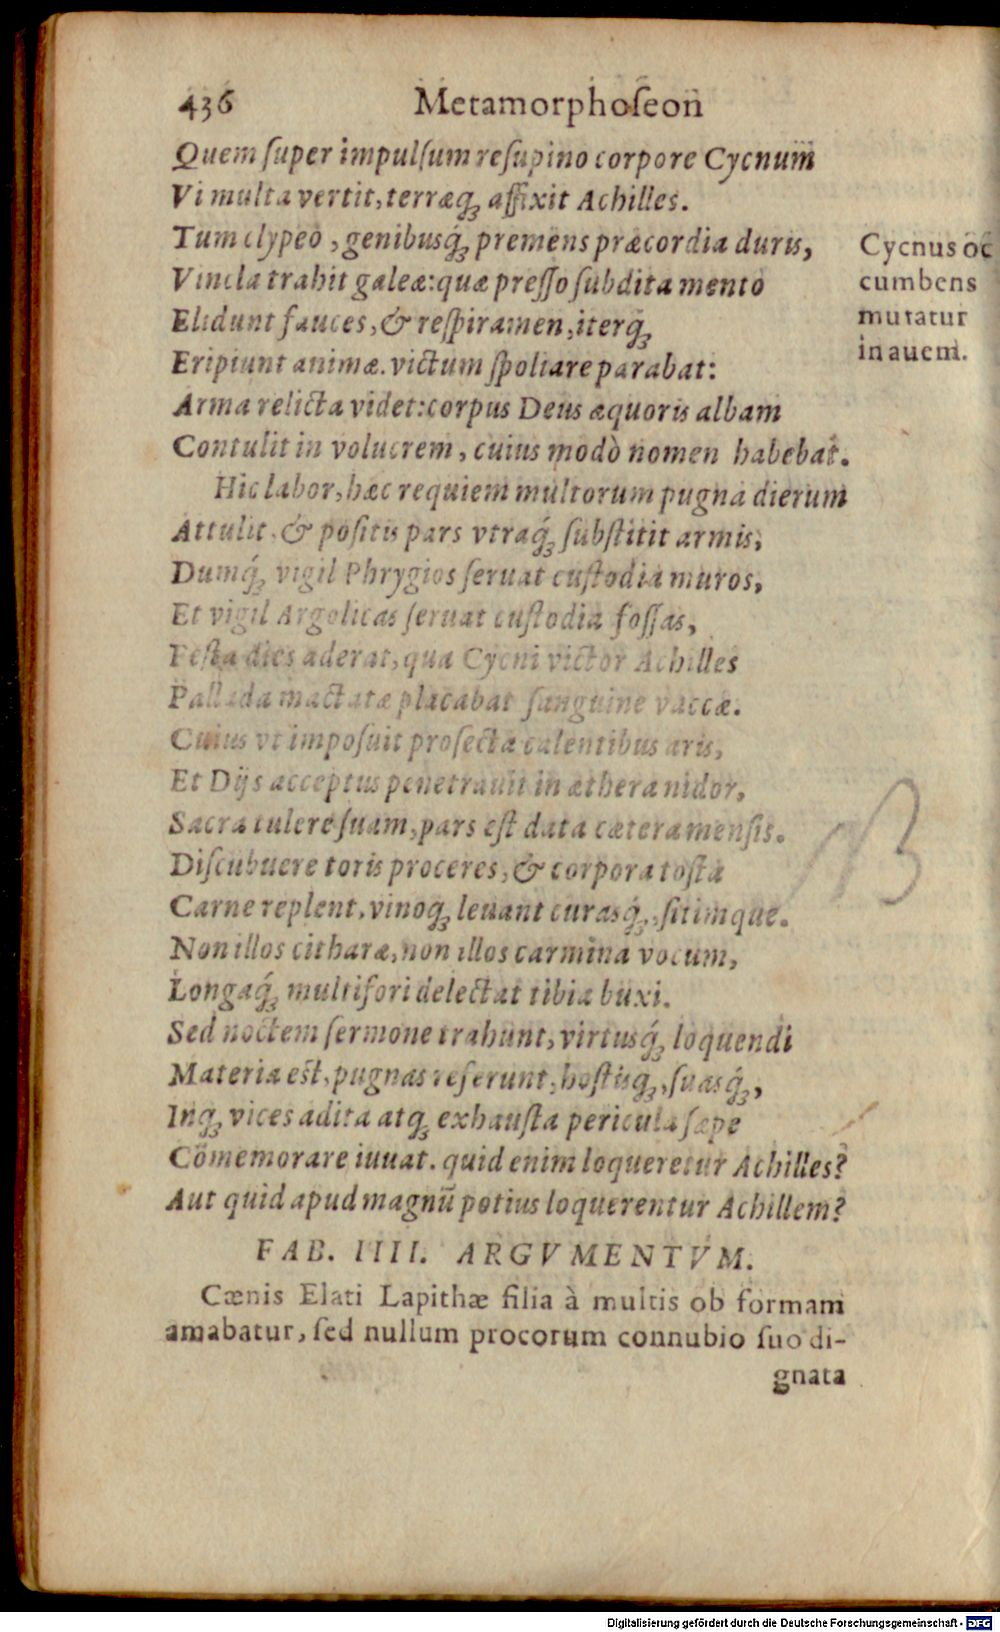 436 Metamorphoſeon
Quem ſuper impulſum reſupino corpore Cycnum
Vi multa vertit, terræq́ꝫ affixit Achilles.
Tum clypeo, genibusq́ꝫ premens præcordia duris,
Vincla trahit galeæ: quæ preſſo ſubdita mento
Elidunt fauces, & reſpiramen, iterq́ꝫ
Eripiunt animæ. victum ſpoliare parabat:
Arma relicta videt: corpus Deus æquoris albam
Contulit in volucrem, cuius modò nomen habebat.
Hic labor, hæc requiem multorum pugna dierum
Attulit, & poſitis pars vtraq́ꝫ ſubſtitit armis;
Dumq́ꝫ vigil Phrygios ſeruat cuſtodia muros,
Et vigil Argolicas ſeruat cuſtodia foſſas,
Feſta dies aderat, qua Cycni victor Achilles
Pallada mactatæ placabat ſanguine vaccæ.
Cuius vt impoſuit proſecta calentibus aris,
Et Dijs acceptus penetrauit in æthera nidor,
Sacra tulere ſuam, pars eſt data cætera menſis.
Diſcubuere toris proceres, & corpora toſta
Carne replent, vinoqꝫ leuant curasq́ꝫ, ſitimque.
Non illos citharæ, non illos carmina vocum,
Longaq́ꝫ multifori delectat tibia buxi.
Sed noctem ſermone trahunt, virtusq́ꝫ loquendi
Materia eſt, pugnas referunt, hoſtisqꝫ, ſuasq́ꝫ,
Inqꝫ vices adita atqꝫ exhauſta pericula ſæpe
Cõmemorare iuuat. quid enim loqueretur Achilles?
Aut quid apud magnũ potius loquerentur Achillem?
Cycnus oc
cumbens
mutatur
in auem.
FAB. IIII. ARGVMENTVM.
Cænis Elati Lapithæ filia à multis ob formam
amabatur, ſed nullum procorum connubio ſuo di-
gnata
Digitalisierung gefördert durch die Deutsche Forschungsgemeinschaft - DFG